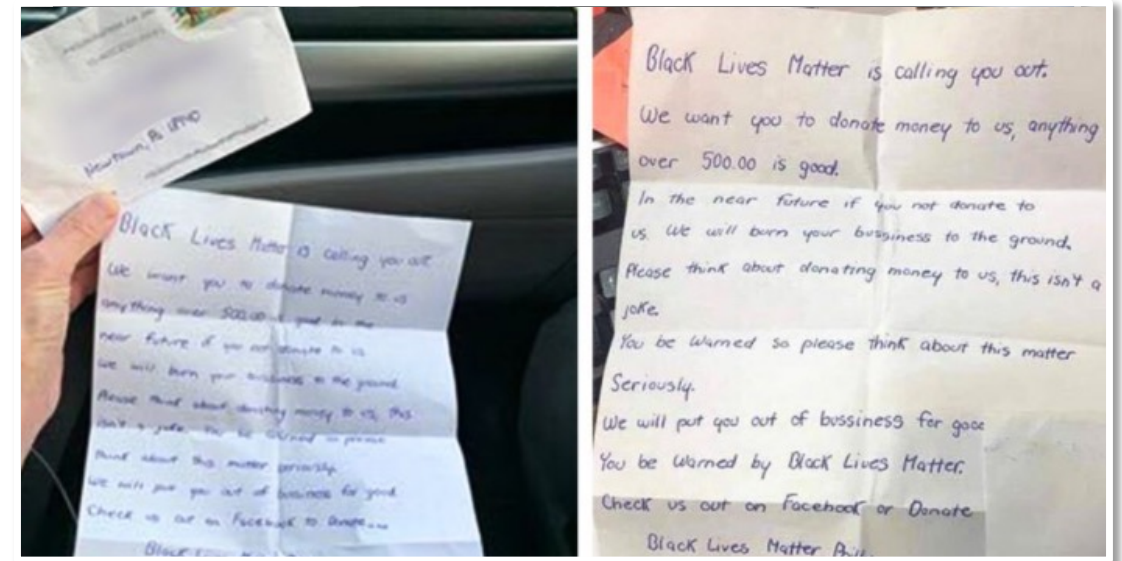 Newtown, Pa 18940
Black Lives Matter is calling you out
We want you to donate money to us
anything over 500.00 is good in the
near future if you not donate to us
We will burn your bussiness to the ground
Please think about donating money to us, this
isn't a joke. You be warned so please
think about this matter seriously.
We will put you out of bussiness for good
Check us out on Facebook to Donate...
Black Lives
Black Lives Matter is calling you out.
We want you to donate money to us, anything
over 500.00 is good.
In the near future if you not donate to
us. We will burn your bussiness to the ground.
Please think about donating money to us, this isn't a
joke.
You be Warned so please think about this matter
Seriously.
We will put you out of bussiness for good
You be Warned by Black Lives Matter.
Check us out on Facebook or Donate
Black Lives Matter